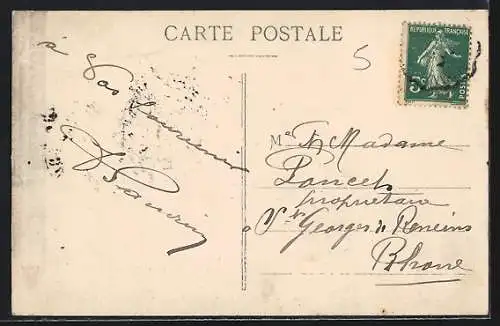 CARTE POSTALE
5
RÉPUBLIQUE FRANÇAISE
5c
POSTES
à
Bon Souvenir
M et Madame
Poncet
propriétaire
à St Georges de Reneins
Rhone